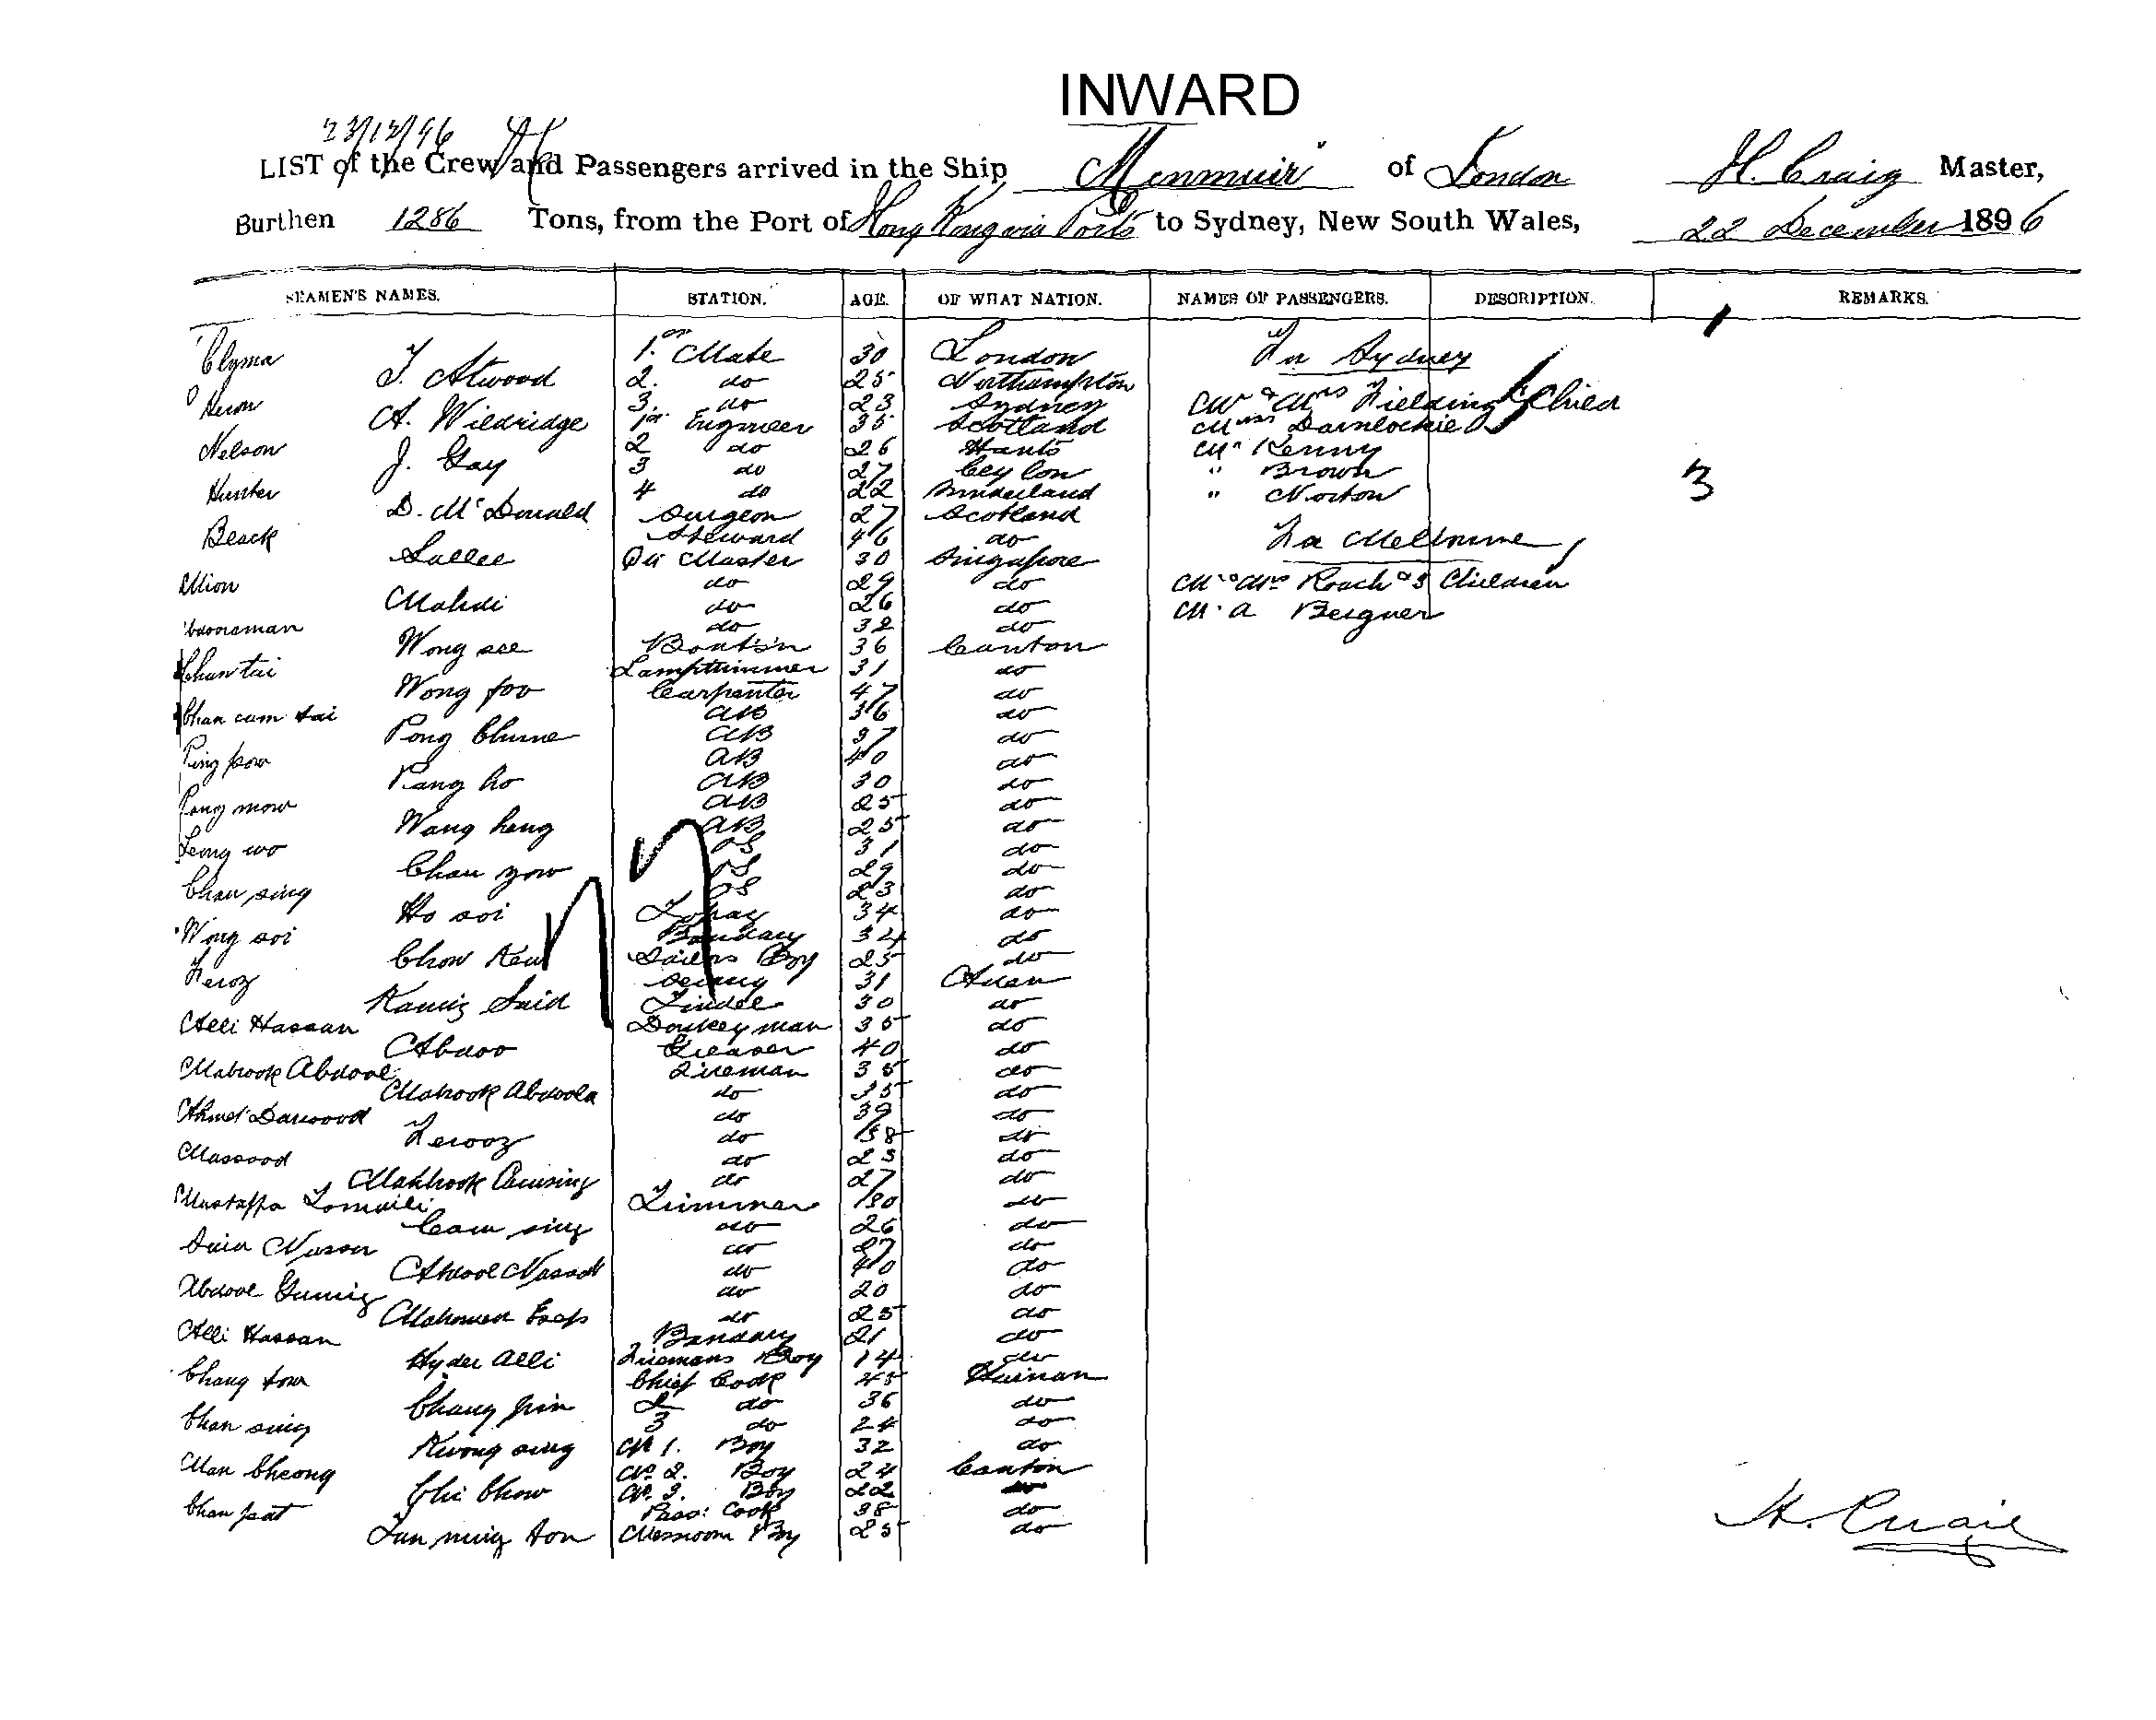 INWARD
23/12/96
LIST of the Crew and Passengers arrived in the Ship Menmuir of London H. Craig Master,
Burthen 1286 Tons, from the Port of Hong Kong via Ports to Sydney, New South Wales, 22 December 1896
SEAMEN'S NAMES. STATION. AGE. OF WHAT NATION. NAMES OF PASSENGERS. DESCRIPTION. REMARKS.
Clyma 1. Mate 30 London For Sydney
T. Atwood 2. do 25 Northampton
Heron 3. do 23 Sydney Mr & Mrs Fielding & Child
A. Wildridge 1st Engineer 35 Scotland
Nelson 2 do 26 Hants Mr Kenny
J. Gay 3 do 27 Ceylon " Brown 3
Hunter 4 do 22 Sunderland " Norton
D. McDonald Surgeon 27 Scotland
Black Steward 46 do For Melbourne
Sallee Qr Master 30 Singapore
do 29 do Mr & Mrs Roach & 3 Children
Mahdi do 26 do M. A Bergner
do 32 do
Wong see Boats'n 36 Canton
Chan tai Lamptrimmer 31 do
Wong foo Carpenter 47 do
Chan cum tai AB 36 do
Pong Chune AB 37 do
Ping pow AB 40 do
Pang ho AB 30 do
Pong mow AB 25 do
Wang heng AB 25 do
Leong wo OS 31 do
Chan yow OS 29 do
Chan sing OS 23 do
Ho soi 34 do
Wong soi Bandary 34 do
Chow Kew Sailors Boy 25 do
Feroz Serang 31 Aden
Kamis Said Tindal 30 do
Alli Hassan Donkeyman 35 do
Abdoo Greaser 40 do
Mabrook Abdool Fireman 35 do
Mabrook Abdoola do 35 do
Ahmet Dawood do 39 do
Ferooz do 38 do
Massood do 23 do
Mabhook do 27 do
Mustaffa Trimmer 30 do
Cam sing do 26 do
Said Nasser do 27 do
Abdool Nassod do 40 do
Abdool do 20 do
Mahomed do 25 do
Alli Hassan Bandary 21 do
Hyder Alli Firemans Boy 14 do
Chang tow Chief Cook 45 Hainan
Chang pin 2 do 36 do
Chan sing 3 do 24 do
Kwong sing No 1. Boy 32 do
Man Cheong No 2. Boy 24 Canton
Chi Chow No 3. Boy 22 do
Chan pat Pass: Cook 38 do
Tun ming ton Messroom Boy 25 do
H. Craig